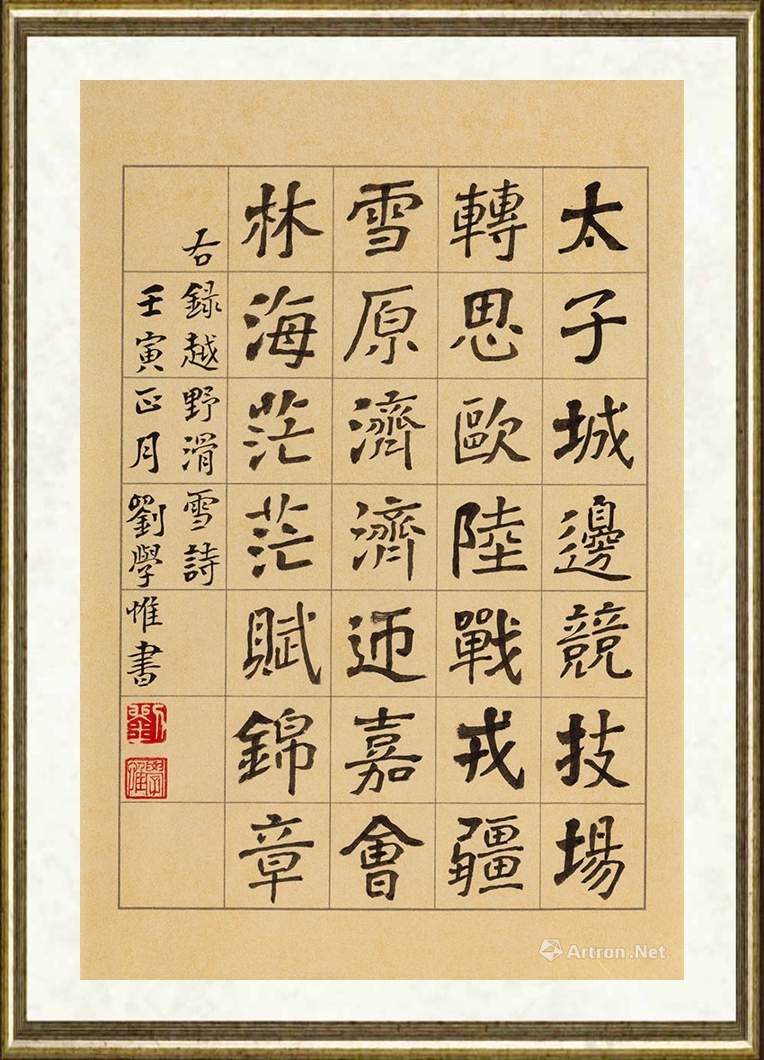 太子城邊競技場
轉思歐陸戰戎疆
雪原濟濟迊嘉會
林海茫茫賦錦章
右錄越野滑雪詩
壬寅正月劉學惟書
劉
學惟
Artron.Net